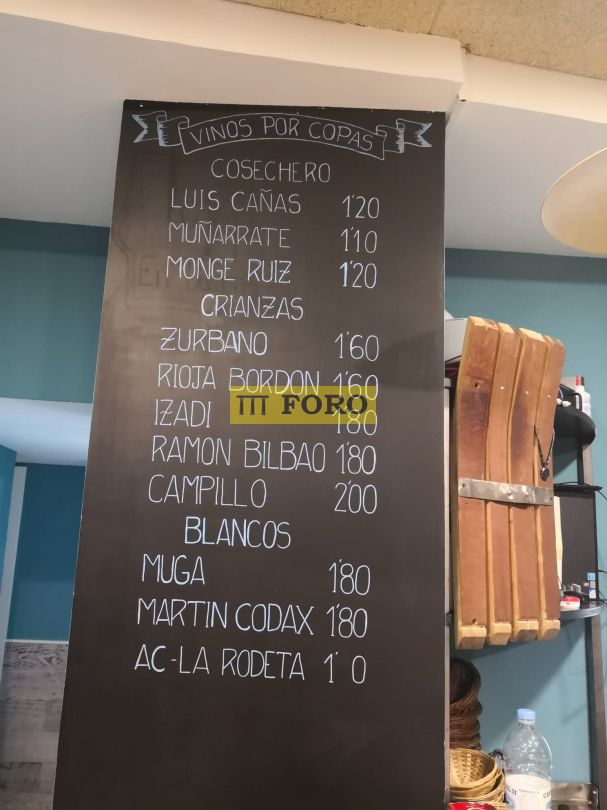 VINOS POR COPAS
COSECHERO
LUIS CAÑAS 1'20
MUÑARRATE 1'10
MONGE RUIZ 1'20
CRIANZAS
ZURBANO 1'60
RIOJA BORDON 1'60
FORO
IZADI 1'80
RAMON BILBAO 1'80
CAMPILLO 2'00
BLANCOS
MUGA 1'80
MARTIN CODAX 1'80
AC-LA RODETA 1' 0